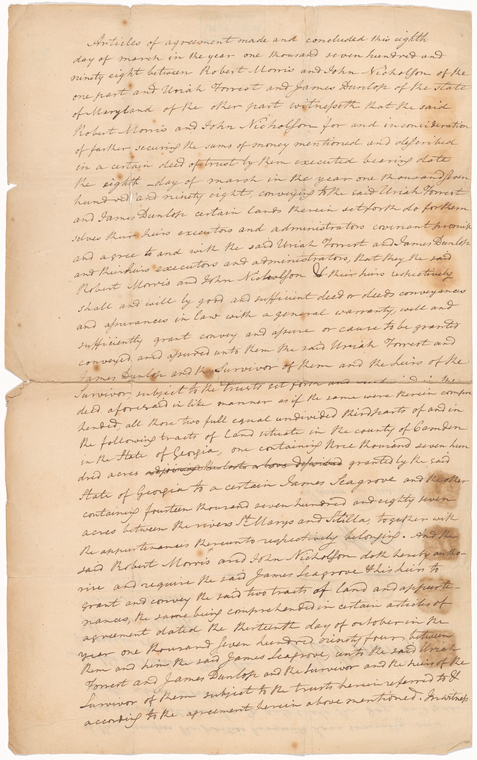 Articles of agreement made and concluded this eighth
day of march in the year one thousand seven hundred and
ninety eight between Robert Morris and John Nicholson of the
one part and Uriah Forrest and James Dunlop of the state
of Maryland of the other part witnesseth that the said
Robert Morris and John Nicholson for and in consideration
of farther securing the sums of money mentioned and described
in a certain deed of trust by them executed bearing date
the eighth day of march in the year one thousand seven
hundred and ninety eight, conveying to the said Uriah Forrest
and James Dunlop certain lands therein set forth do for them
selves their heirs executors and administrators covenant promise
and agree to and with the said Uriah Forrest and James Dunlop
and their heirs executors and administrators, that they the said
Robert Morris and John Nicholson & their heirs respectively
shall and will by good and sufficient deed or deeds conveyances
and assurances in law with a general warranty, well and
sufficiently grant convey and assure or cause to be granted
conveyed and assured unto them the said Uriah Forrest and
James Dunlop and the Survivor of them and the heirs of the
Survivor subject to the trusts set forth and in the
deed aforesaid in like manner as if the same were therein compre
hended, all those two full equal undivided third parts of and in
the following tracts of land situate in the county of Camden
in the State of Georgia, one containing three thousand seven hun
dred acres granted by the said
State of Georgia to a certain James Seagrove and the other
containing fourteen thousand seven hundred and eighty seven
acres between the rivers St Marys and Sitilla, together with
the appurtenances thereunto respectively belonging. And the
said Robert Morris and John Nicholson doth hereby autho-
rise and require the said James Seagrove & his heirs to
grant and convey the said two tracts of land and appurte-
nances, the same being comprehended in certain articles of
agreement dated the thirteenth day of october in the
year one thousand seven hundred & ninety four, between
them and him the said James Seagrove unto the said Uriah
Forrest and James Dunlop and the Survivor and the heirs of the
Survivor of them subject to the trusts herein referred to &
according to the agreement herein above mentioned. In witness